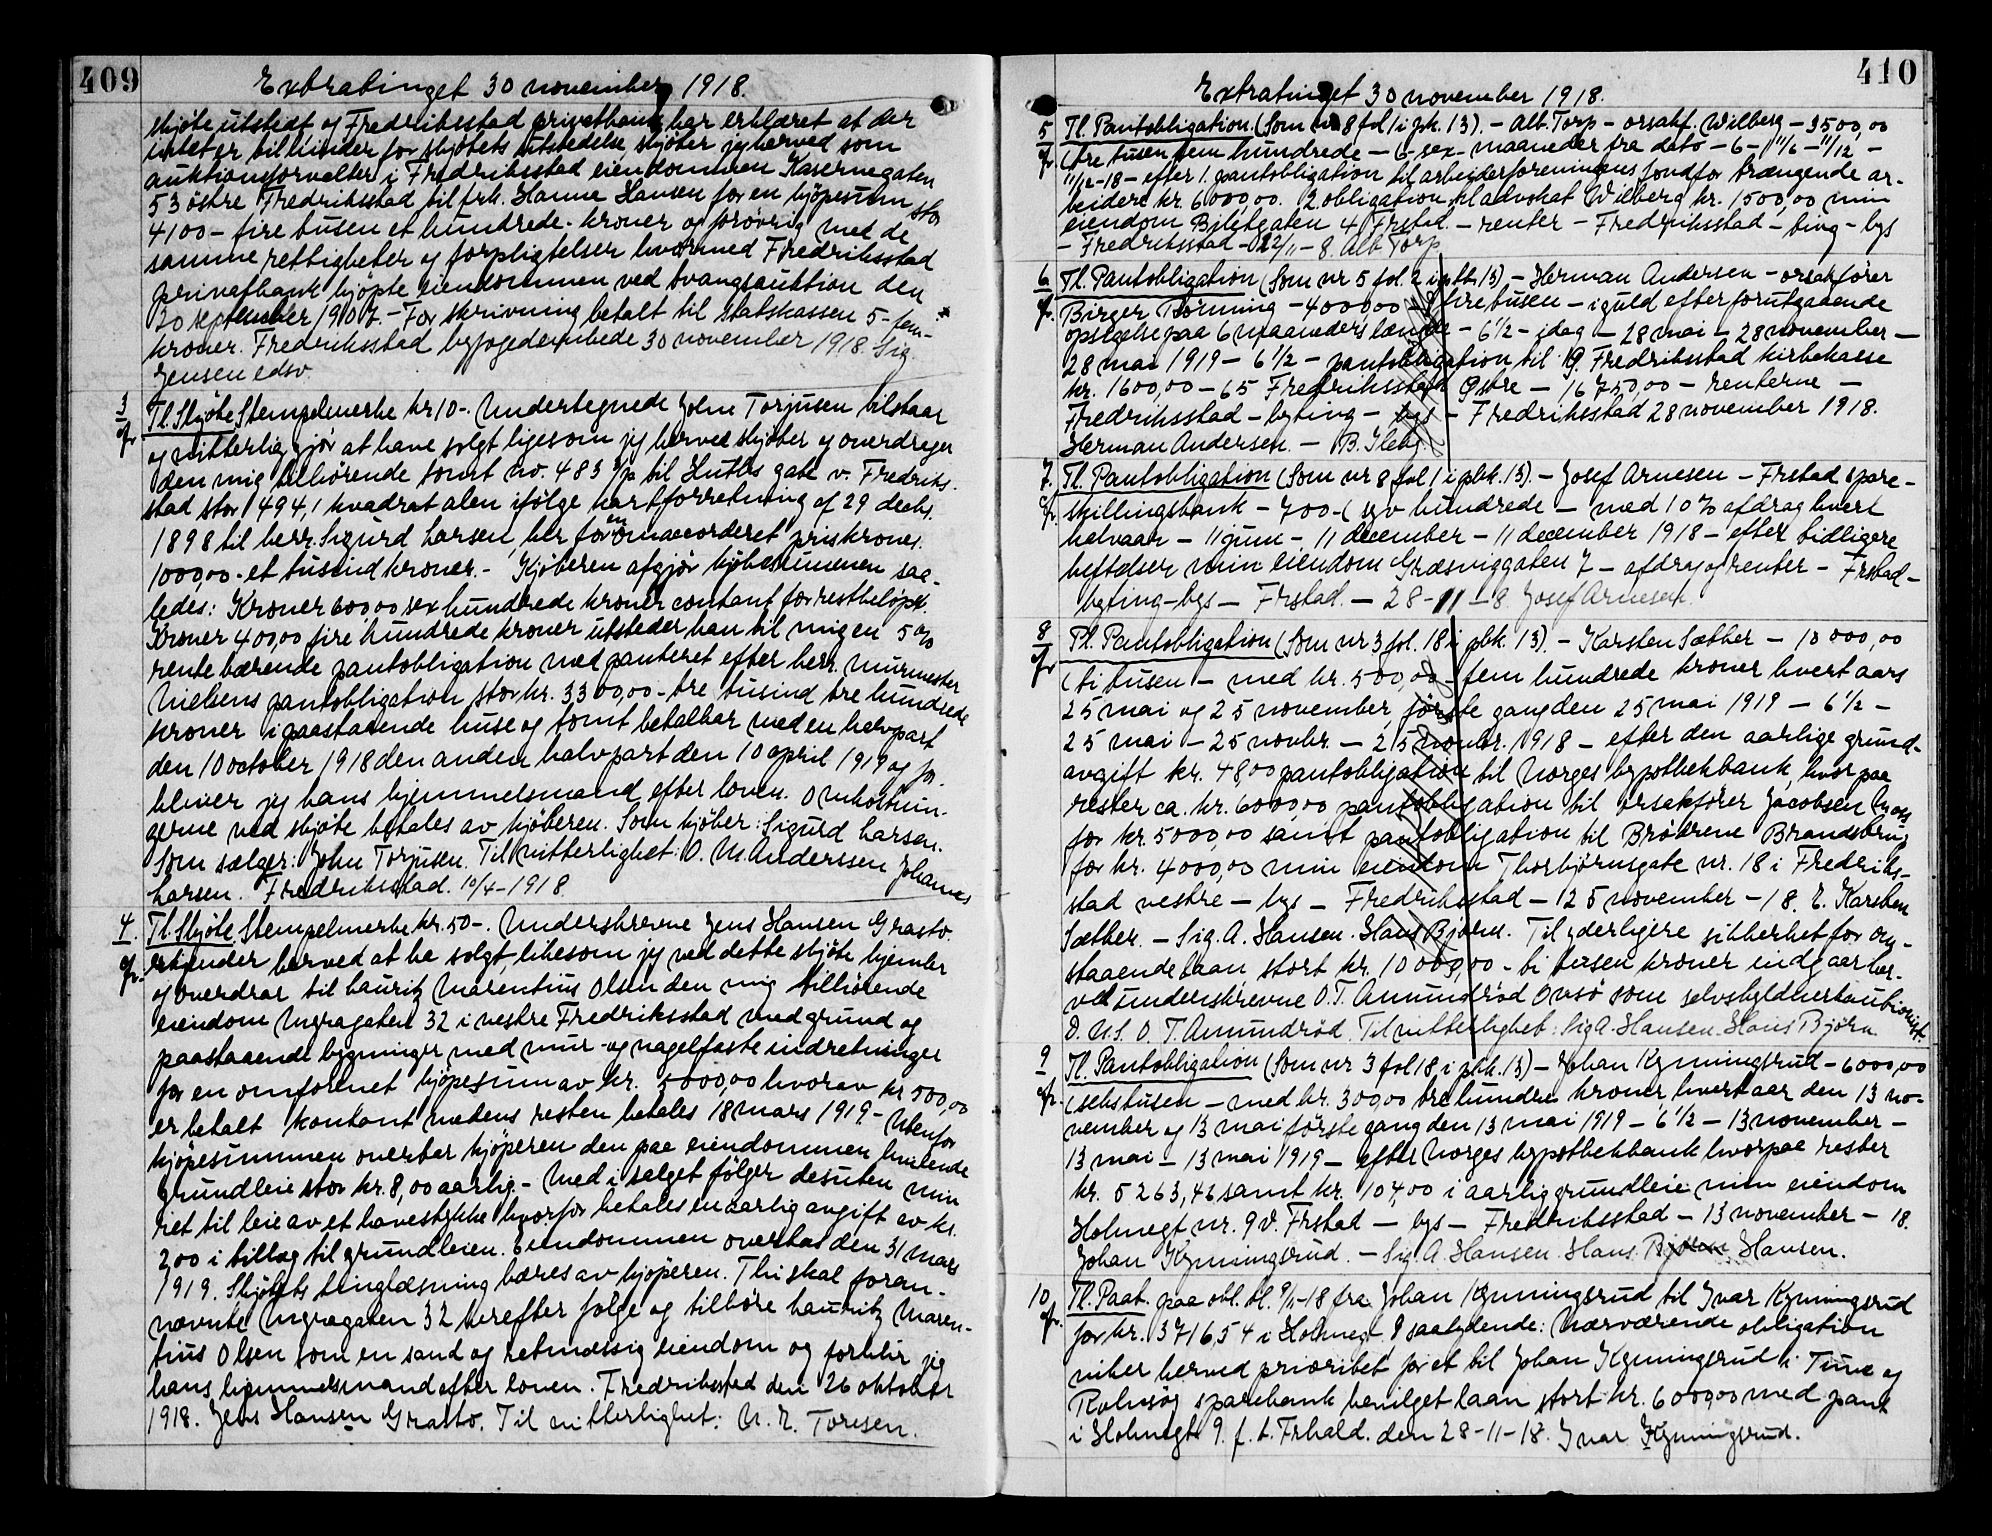 409
Extratinget 30 november 1918.
skjøte utstedt og Fredriksstad privatbank har erklæret at der
intet er til hinder for skjøtets utstedelse skjøter jeg herved som
auktionsforvalter i Fredriksstad eiendommen Kasernegaten
53 østre Fredriksstad til frk. Hanna Hansen for en kjøpesum stor
4100 - fire tusen et hundrede - kroner og forøvrig med de
samme rettigheter og forpligtelser hvormed Fredriksstad
privatbank kjøpte eiendommen ved tvangsauktion den
20 september 1907. - For skrivning betalt til statskassen 5 - fem -
kroner. Fredriksstad byfogedembede 30 november 1918. Sig.
Jensen edsv
3 Tl. Skjøte Stempelmerke kr 10 -. Undertegnede John Torjusen tilstaar
og vitterlig gjør at have solgt ligesom jeg herved skjøter og overdrager
den mig tilhørende tomt no. 483 til gate v. Fredriks-
stad stor 1494,1 kvadrat alen ifølge kartforretning af 29 decbr.
1898 til herr. Sigurd Larsen, her for en omaccorderet pris kroner
1000,00 - et tusind kroner. - Kjøberen afgjør kjøbesummen saa-
ledes: Kroner 600,00 sex hundrede kroner contant for restbeløpet
Kroner 400,00 fire hundrede kroner utsteder han til mig en 5 %
rente bærende pantobligation med panteret efter herr. murmester
Nielsens pantobligation stor kr. 3300,00 - tre tusind tre hundrede
kroner i paastaaende huse og tomt betalbar med en halvpart
den 10 october 1918 den anden halvpart den 10 april 1919 og for-
bliver jeg hans hjemmelsmand efter loven. Omkostnin-
gerne ved skjøte betales av kjøberen. Som kjøber: Sigurd Larsen.
Som sælger: John Torjusen. Til vitterlighet: O. M. Anderssen Johannes
Larsen. Fredriksstad. 10/4 - 1918.
4. Tl. Skjøte Stempelmerke kr. 50 -. Underskrevne Jens Hansen Grasto
erkjender herved at ha solgt, likesom jeg ved dette skjøte hjemler
og overdrar til Lauritz Marentius Olsen den mig tilhørende
eiendom Mgragaten 32 i vestre Fredriksstad med grund og
paastaaende bygninger med mur - og nagelfaste indretninger
for en omforenet kjøpesum av kr. 5000,00 hvorav kr 500,00
er betalt kontant medens resten betales 18 mars 1919 - Utenfor
kjøpesummen overtar kjøperen den paa eiendommen hvilende
grundleie stor kr. 8,00 aarlig. - Med i salget følger desuten min
ret til leie av et havestykke hvorfor betales en aarlig avgift av kr.
2,00 i tillæg til grundleien. Eiendommen overtas den 31 mars
1919. Skjøtets tinglæsning bæres av kjøperen. Thi skal foran-
nævnte Mgragaten 32 herefter følge og tilhøre Lauritz Maren-
tius Olsen som en sand og retmæssig eiendom og forblir jeg
hans hjemmelsmand efter loven. Fredriksstad den 26 oktober
1918. Jens Hansen Grasto. Til vitterlighet: N. N. Toresen.
410
Extratinget 30 november 1918.
5 Tl. Pantobligation (Som nr 8 fol 1 i pk. 13). - Alb. Torp - orsakf. Wilberg - 3500,00
(tre tusen fem hundrede - 6 - sex - maaneder fra dato - 6 - 11/6 - 11/12 -
11/12 - 18 - efter 1. pantobligation til arbeiderforeningens fond for trængende ar-
beidere kr. 6000,00. 2 obligation til advokat Wilberg kr. 1500,00 min
eiendom Biletgaten 4 Frstad. - renter - Fredriksstad - ting - bys
- Fredriksstad - 22/11 - 8. Alb Torp
6 Tl. Pantobligation (Som nr 5 fol. 2 i pbk. 13) - Herman Andersen - orsakfører
Birger Rønning - 4000,00 - fire tusen - i guld efter forutgaaende
opsigelse paa 6 maaneders længde - 6 1/2 - idag - 28 mai - 28 november -
28 mai 1919 - 6 1/2 - pantobligation til Fredriksstad kirkekasse
kr. 1600,00 - 65 Fredriksstad Østre - 16750,00 - renterne -
Fredriksstad - byting - bys - Fredriksstad 28 november 1918.
Herman Andersen. - B.
7. Tl. Pantobligation (Som nr 8 fol 1 i pbk. 13). - Josef Arnesen - Frstad spare-
skillingsbank - 700 - (syv hundrede - med 10 % afdrag hvert
halvaar - 11 juni - 11 december - 11 december 1918 - efter tidligere
heftelser min eiendom Græsviggaten 7 - afdrag og renter - Frstad -
byting - bys - Frstad. - 28 - 11 - 8. Josef Arnesen.
8 Tl. Pantobligation (Som nr 3 fol. 18 i pbk. 13). - Karsten Sæther - 10 000,00
(ti tusen - med kr. 500,00 - fem hundrede kroner hvert aars
25 mai og 25 november, første gang den 25 mai 1919 - 6 1/2 -
25 mai - 25 novbr. - 25 novbr. 1918 - efter den aarlige grund-
avgift kr. 48,00 pantobligation til Norges hypothekbank, hvorpaa
rester ca. kr. 6000,00 pantobligation til orsakfører Jacobsen Moss
for kr. 5000,00 samt pantobligation til Brødrene Brandstrup
for kr. 4000,00 min eiendom Thorbjørnsgate nr. 18 i Fredriks-
stad vestre - bys - Fredriksstad - 25 november - 18. E. Karsten
Sæther. - Sig. A. Hansen. Hans Bjørn. Til yderligere sikkerhet for om-
staaende laan stort kr. 10 000,00 - ti tusen kroner indgaar her-
ved underskrevne O. T. Amundrød Onsø som selvskyldnerkautionist.
D. U. S. O. T. Amundrød. Til vitterlighet: Sig A. Hansen. Hans Bjørn
9 Tl. Pantobligation (Som nr 3 fol 18 i pbk. 13) - Johan Kynningsrud - 6000,00
(sekstusen - med kr. 300,00 tre hundre kroner hvert aar den 13 no-
vember og 13 mai første gang den 13 mai 1919 - 6 1/2 - 13 november -
13 mai - 13 mai 1919 - efter Norges hypothekbank hvorpaa rester
kr. 5263,46 samt kr. 104,00 i aarlig grundleie min eiendom
Holmegt nr. 9 v. Frstad - bys - Fredriksstad - 13 november - 18.
Johan Kynningsrud. - Sig. A. Hansen. Hans Bjørn Hansen.
10 Tl. Paat. paa obl. tl. 9/11 - 18 fra Johan Kynningsrud til Ivar Kynningsrud
for kr. 3716,54 i Holmegt. 9 saalydende: Nærværende obligation
viker herved prioritet for et til Johan Kynningsrud i Tune og
Rolvsøy sparebank bevilget laan stort kr. 6000,00 med pant
i Holmegt 9. f. t. Frhald. den 28 - 11 - 18. Ivar Kynningsrud.